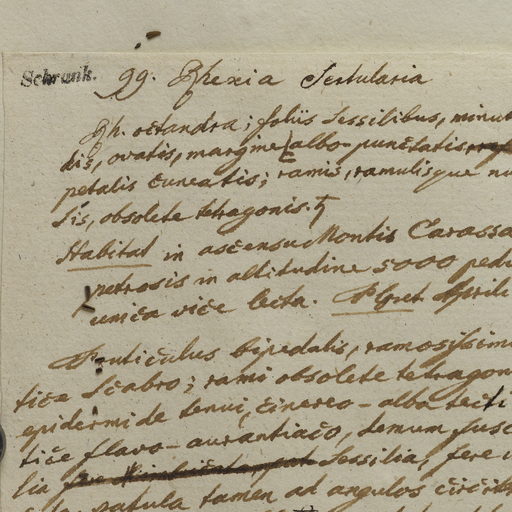 Schrank. 99. Rhexia Sertularia
Rh. octandra; foliis sessilibus, minut
dis, ovatis, margine albo-punctatis,
petalis cuneatis; ramis, ramulisque nu
sis, obsolete tetragonis. ♄
Habitat in ascensu Montis Carassa
petrosis in altitudine 5000 pedu
unica vice lecta. Floret Aprili
Fruticulus bipedalis, ramosissimu
tice scabro; rami obsolete tetragon
epidermide tenui, cinereo-alba tecti
tice flavo-aurantiaco, demum fusc
lia sessilia, fere
patula tamen ad angulos